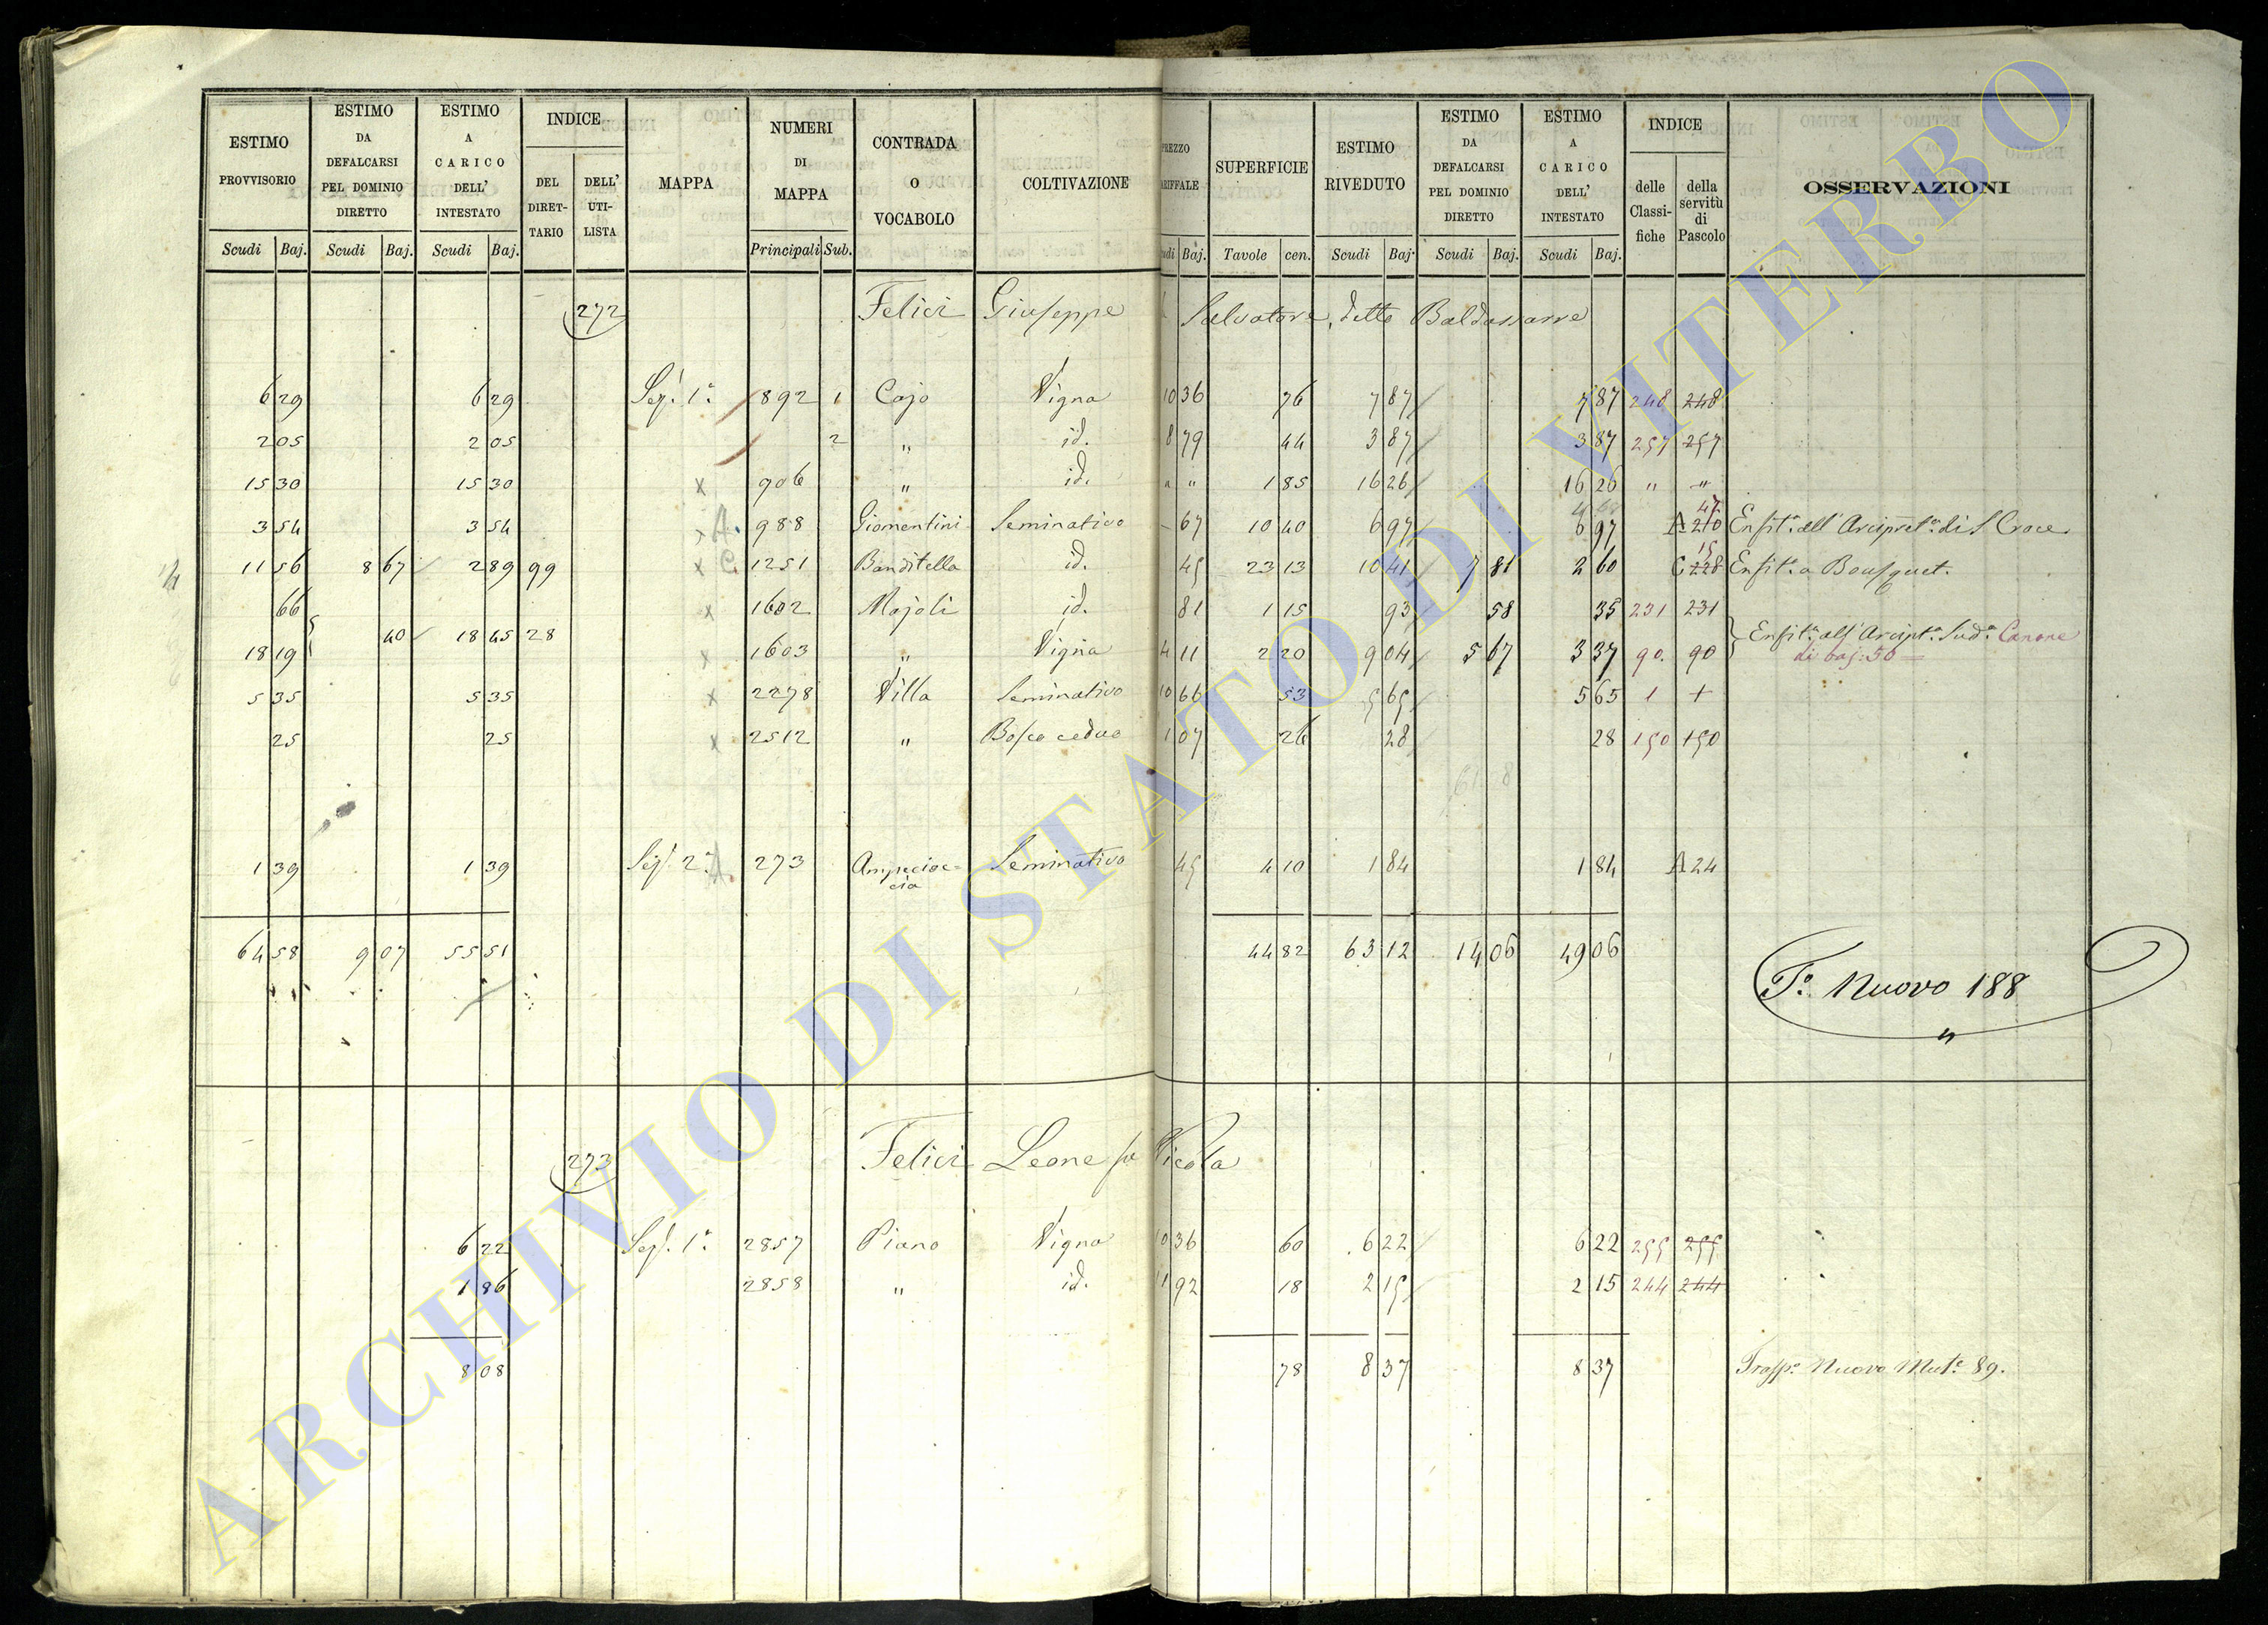 ESTIMO PROVVISORIO ESTIMO DA DEFALCARSI PEL DOMINIO DIRETTO ESTIMO A CARICO DELL' INTESTATO INDICE DEL DIRET-TARIO DELL' UTI-LISTA MAPPA NUMERI DI MAPPA CONTRADA O VOCABOLO COLTIVAZIONE PREZZO SUPERFICIE ESTIMO RIVEDUTO ESTIMO DA DEFALCARSI PEL DOMINIO DIRETTO ESTIMO A CARICO DELL' INTESTATO INDICE delle Classi-fiche della servitù di Pascolo OSSERVAZIONI
Scudi Baj. Scudi Baj. Scudi Baj. Principali Sub. Baj. Tavole cen. Scudi Baj. Scudi Baj. Scudi Baj.
272 Felici Giuseppe Salvatore, detto Baldassarre
6 29 6 29 Sez. 1ª 892 1 Cajo Vigna 10 36 76 7 87 7 87 248 248
2 05 2 05 2 " id. 8 79 44 3 87 3 87 257 257
15 30 15 30 x 906 " id. " " 1 85 16 26 16 26 " "
3 54 3 54 x A. 988 Giomentini Seminativo - 67 10 40 6 97 6 97 A 210 47 Enfit. all' Arcipret. di S Croce
11 56 8 67 2 89 99 x C. 1251 Banditella id. 45 23 13 10 41 7 81 2 60 C 228 15 Enfit. a Bousquet.
66 x 1602 Majoli id. 81 1 15 93 58 35 231 231
40 18 45 28 Enfit. all' Arcipt. Sud. Canone
18 19 x 1603 " Vigna 4 11 2 20 9 04 5 67 3 37 90. 90 di baj: 50 =
5 35 5 35 x 2278 Villa Seminativo 10 66 53 5 65 5 65 1 1
25 25 x 2512 " Bosco ceduo 1 07 26 28 28 150 150
61 8
1 39 1 39 Sez. 2ª A. 273 Ampecioc-cia Seminativo 45 4 10 1 84 1 84 A 24
64 58 9 07 55 51 44 82 63 12 14 06 49 06
Tº Nuovo 188
"
273 Felici Leone fu Nicola
6 22 Sez. 1ª 2857 Piano Vigna 10 36 60 6 22 6 22 255 255
1 86 2858 " id. 11 92 18 2 15 2 15 244 244
8 08 78 8 37 8 37 Trasp. Nuovo Mut. 89.
ARCHIVIO DI STATO DI VITERBO